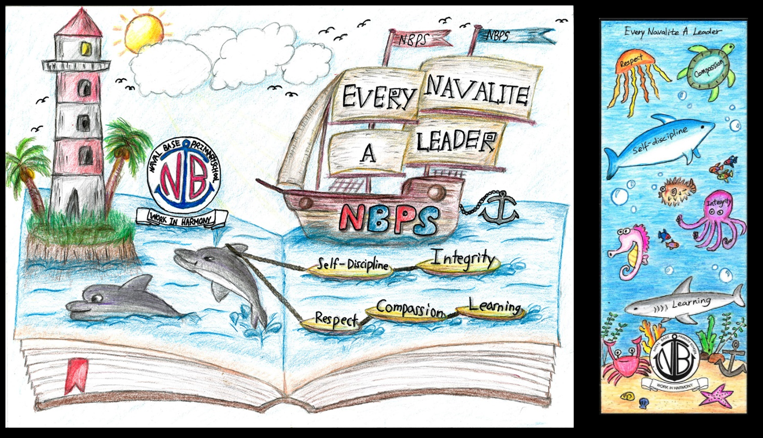 NBPS
NBPS
EVERY
NAVALITE
A
LEADER
NAVAL BASE PRIMARY SCHOOL
NB
WORK IN HARMONY
NBPS
Self-Discipline
Integrity
Respect
Compassion
Learning
Every Navalite A Leader
Respect
Compassion
Self-discipline
Integrity
Learning
NB
WORK IN HARMONY